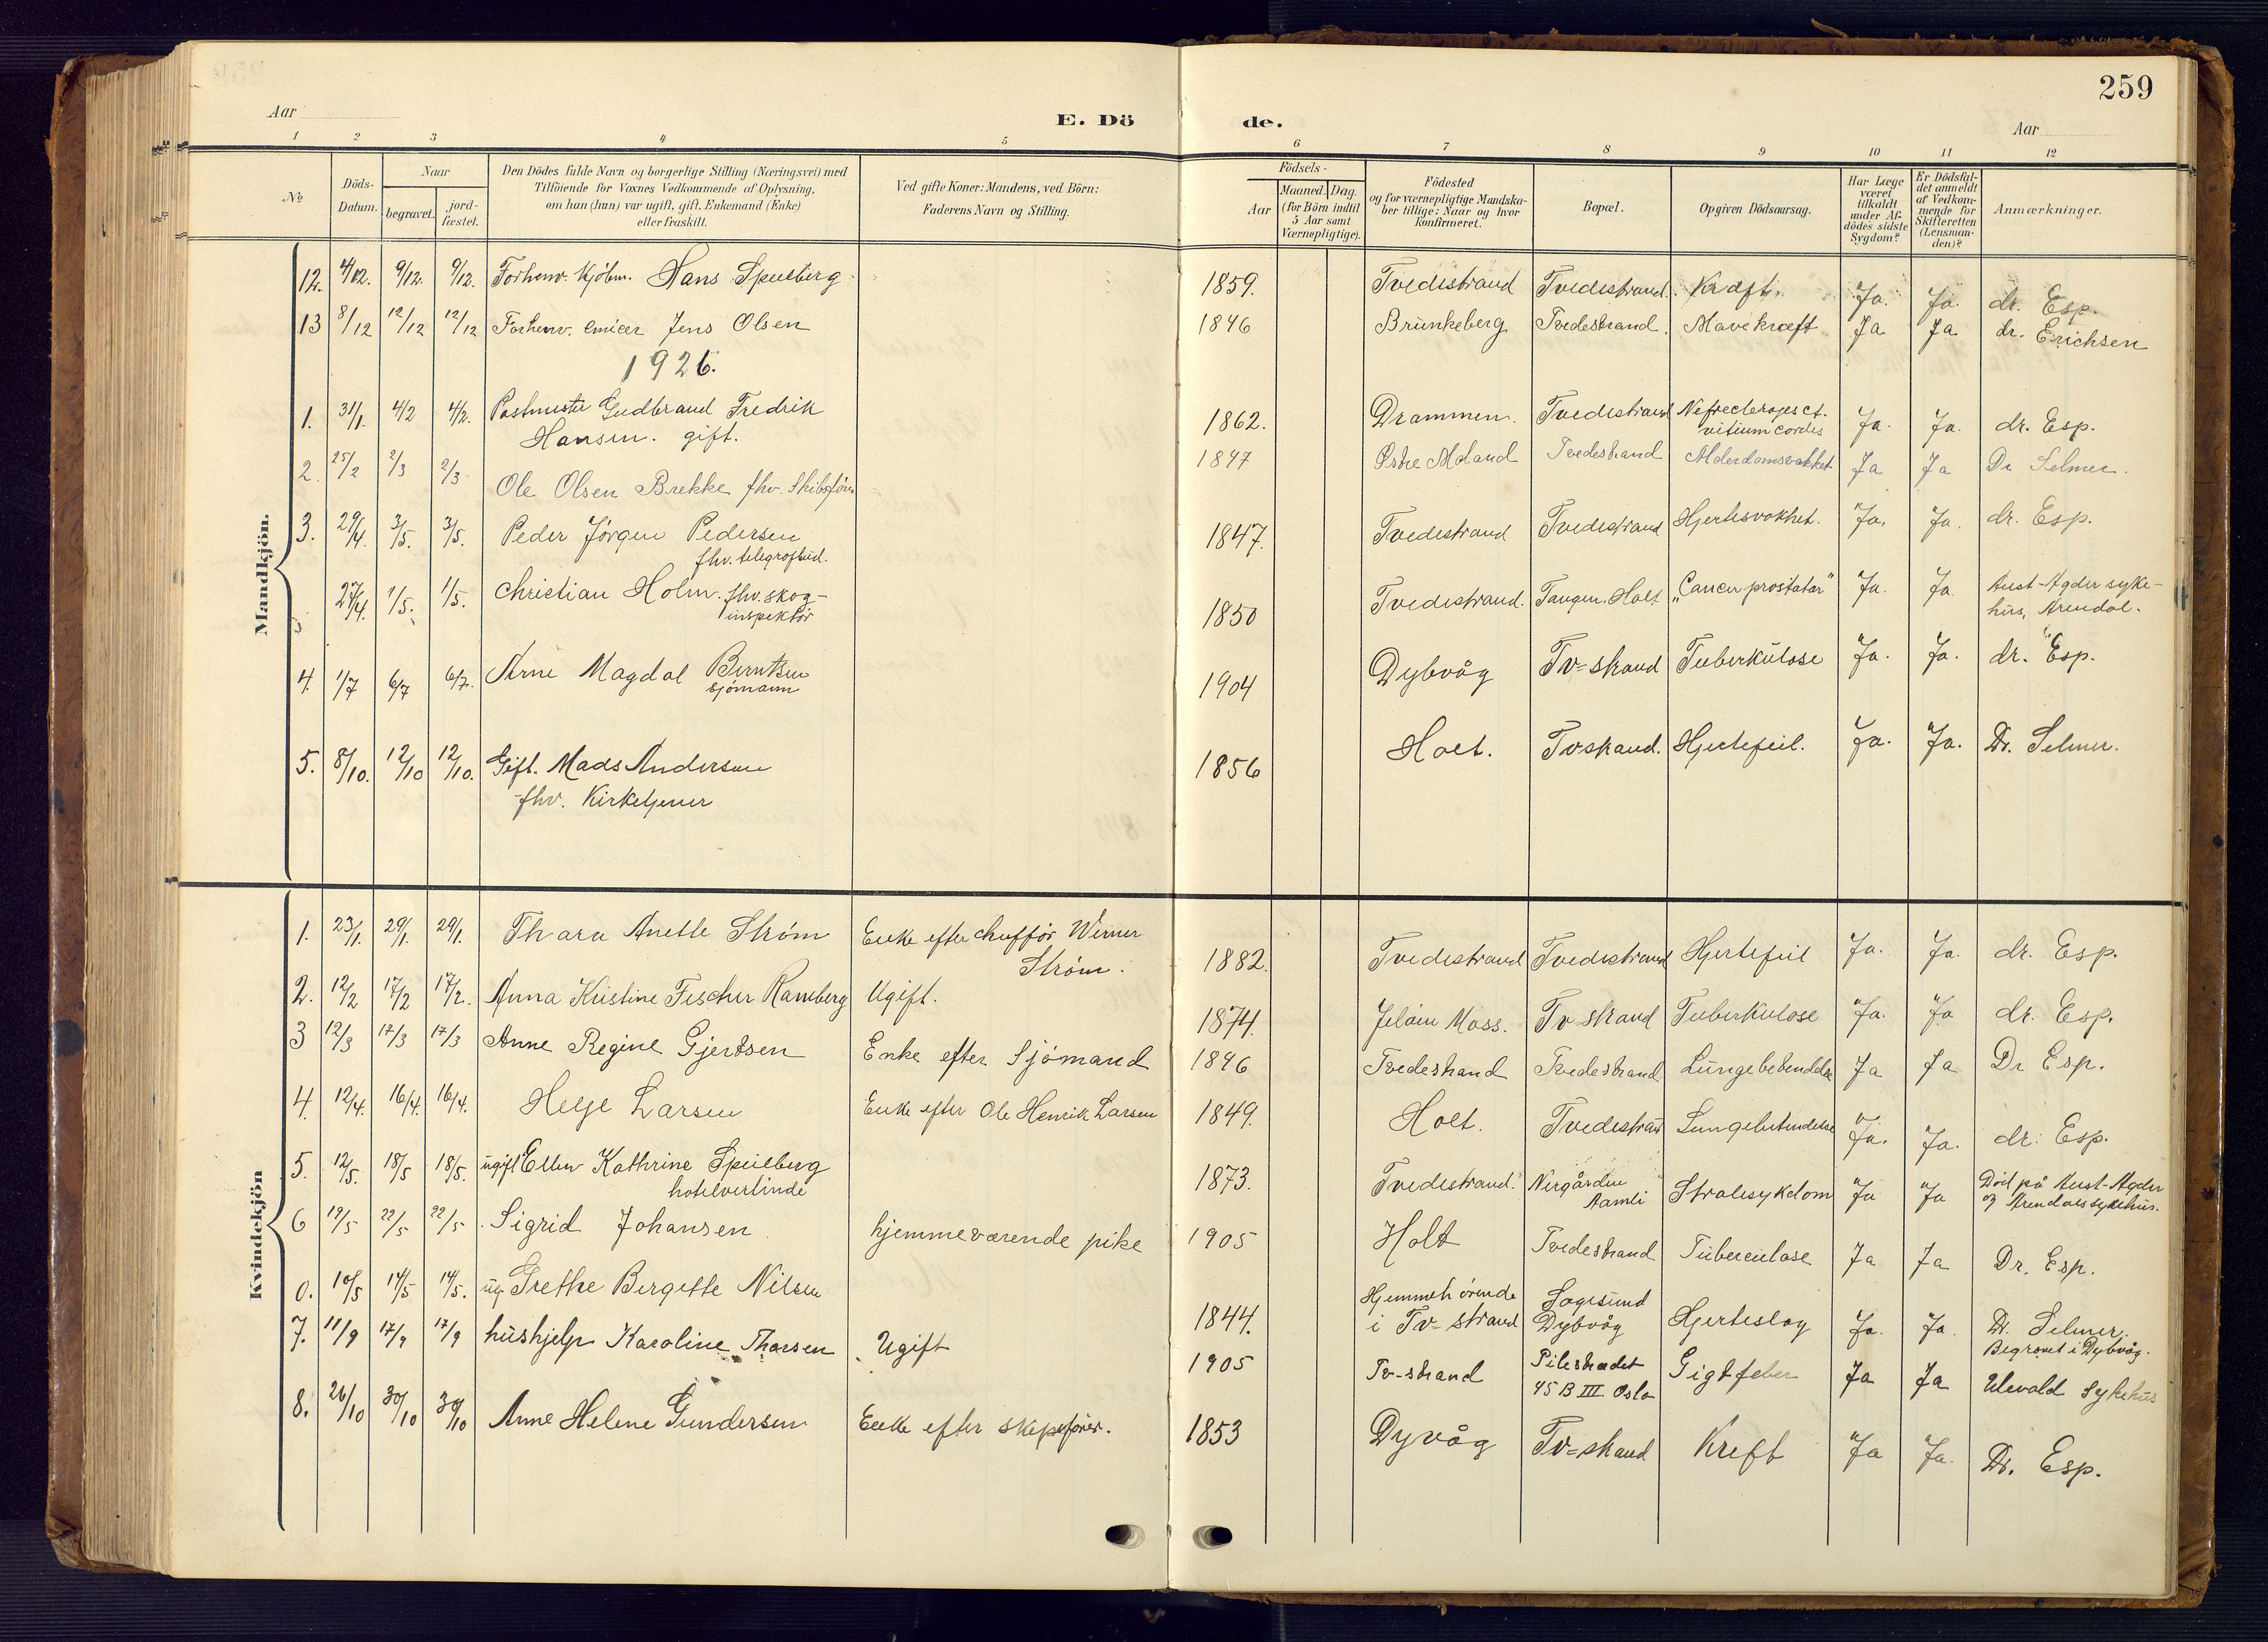 259
Aar
E. Dö
de.
Aar
1 2 3 4 5 6 7 8 9 10 11 12
No
Döds-Datum.
Naar
begravet.
jord-fæstet.
Den Dödes fulde Navn og borgerlige Stilling (Næringsvei) med
Tilföiende for Voxnes Vedkommende af Oplysning,
om han (hun) var ugift, gift, Enkemand (Enke)
eller fraskilt.
Ved gifte Koner: Mandens, ved Börn:
Faderens Navn og Stilling.
Födsels-
Aar
Maaned. Dag.
(for Börn indtil
5 Aar samt
Værnepligtige).
Födested
og for værnepligtige Mandska-
ber tillige: Naar og hvor
konfirmeret.
Bopæl.
Opgiven Dödsaarsag.
Har Læge
været
tilkaldt
under Af-
dödes sidste
Sygdom?
Er Dödsfal-
det anmeldt
af Vedkom-
mende for
Skifteretten
(Lensman-
den)?
Anmærkninger.
Mandkjön.
12. 4/12. 9/12. 9/12. Forhenv. Kjöbm. Hans Spulberg 1859. Tvedestrand Tvedestrand. Kræft. Ja. Ja. dr. Esp.
13 8/12 12/12 12/12 Forhenv. Jens Olsen 1846 Brunkeberg. Tvedestrand. Mavekræft Ja Ja dr. Erichsen
1926.
1. 31/1. 4/2 4/2. Postmester Gudbrand Fredrik 1862. Drammen. Tvedestrand Ja. Ja. dr. Esp.
Hansen. gift. vitium cordis
2. 25/2 2/3 2/3 Ole Olsen Brekke fhv. Skibsför. 1847 Østre Moland Tvedestrand Alderdomsvakket Ja Ja Dr Selmer.
3. 29/4. 3/5. 3/5. Peder Jörgen Pedersen 1847. Tvedestrand Tvedestrand Hjertesvakhet. Ja. Ja. dr. Esp.
fhv. telegrafbud.
27/4. 1/5. 1/5. Christian Holm. fhv. skog- 1850 Tvedestrand. Tangen. Holt "Cancer prostatar" Ja. Ja Aust-Agder syke-
inspektör hus, Arendal.
4. 1/7 6/7 6/7. Arne Magdal Berntsen 1904 Dybvåg Tv=strand Tuberkulose Ja. Ja. dr. Esp.
sjömann
5. 8/10. 12/10 12/10. Gift. Mads Andersen 1856 Holt. Tvstrand. Hjertefeil. Ja. Ja. Dr. Selmer.
fhv. Kirketjener
Kvindekjön
1. 23/1. 29/1. 29/1. Thara Anette Ström Enke efter chufför Werner 1882. Tvedestrand Tvedestrand Hjertefeil Ja. Ja. dr. Esp.
Ström.
2. 12/2 17/2 17/2. Anna Kristine Fischer Ramberg Ugift. 1874. Jeløin Moss. Tv strand Tuberkulose Ja. Ja dr. Esp.
3 12/3 17/3 17/3 Anne Regine Gjertsen Enke efter Sjömand 1846 Tvedestrand Tvedestrand Lungebetendelse Ja Ja Dr Esp.
4. 12/4. 16/4. 16/4. Helje Larsen Enke efter Ole Henrik Larsen 1849. Holt. Tvedestrand Lungebetendelse Ja. Ja. dr. Esp.
5. 12/5. 18/5 18/5. ugift Ellen Kathrine Speilberg 1873. Tvedestrand. Nergården Strålesykdom Ja Ja Död på Aust-Agder
hotelvertinde Aamli og Arendals sykehus.
6 19/5 22/5 22/5 Sigrid Johansen hjemmeværende pike 1905 Holt Tvedestrand Tuberculose Ja Ja Dr. Esp.
0. 10/5 14/5 14/5. ug Grethe Bergitte Nilsen 1844. Hjemmehörende Sagesund Hjerteslag Ja. Ja. Dr. Selmer.
i Tv-strand Dybvåg Begravet i Dybvåg.
7. 11/9 17/9 17/9 hushjelp Karoline Thorsen Ugift 1905 Tv-strand Pilestrædet Gigtfeber Ja Ja Ulevold Sykehus
45 B III Oslo
8. 26/10 30/10 30/10 Anne Helene Gundersen Enke efter skipsförer. 1853 Dyvåg Tv=strand Kreft Ja Ja. Dr. Esp.